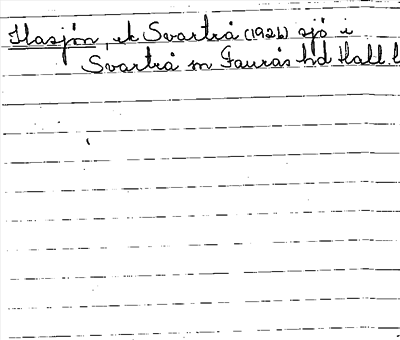 Hasjön, ek Svartrå (1926) sjö i
Svartrå sn Faurås hd Hall. l